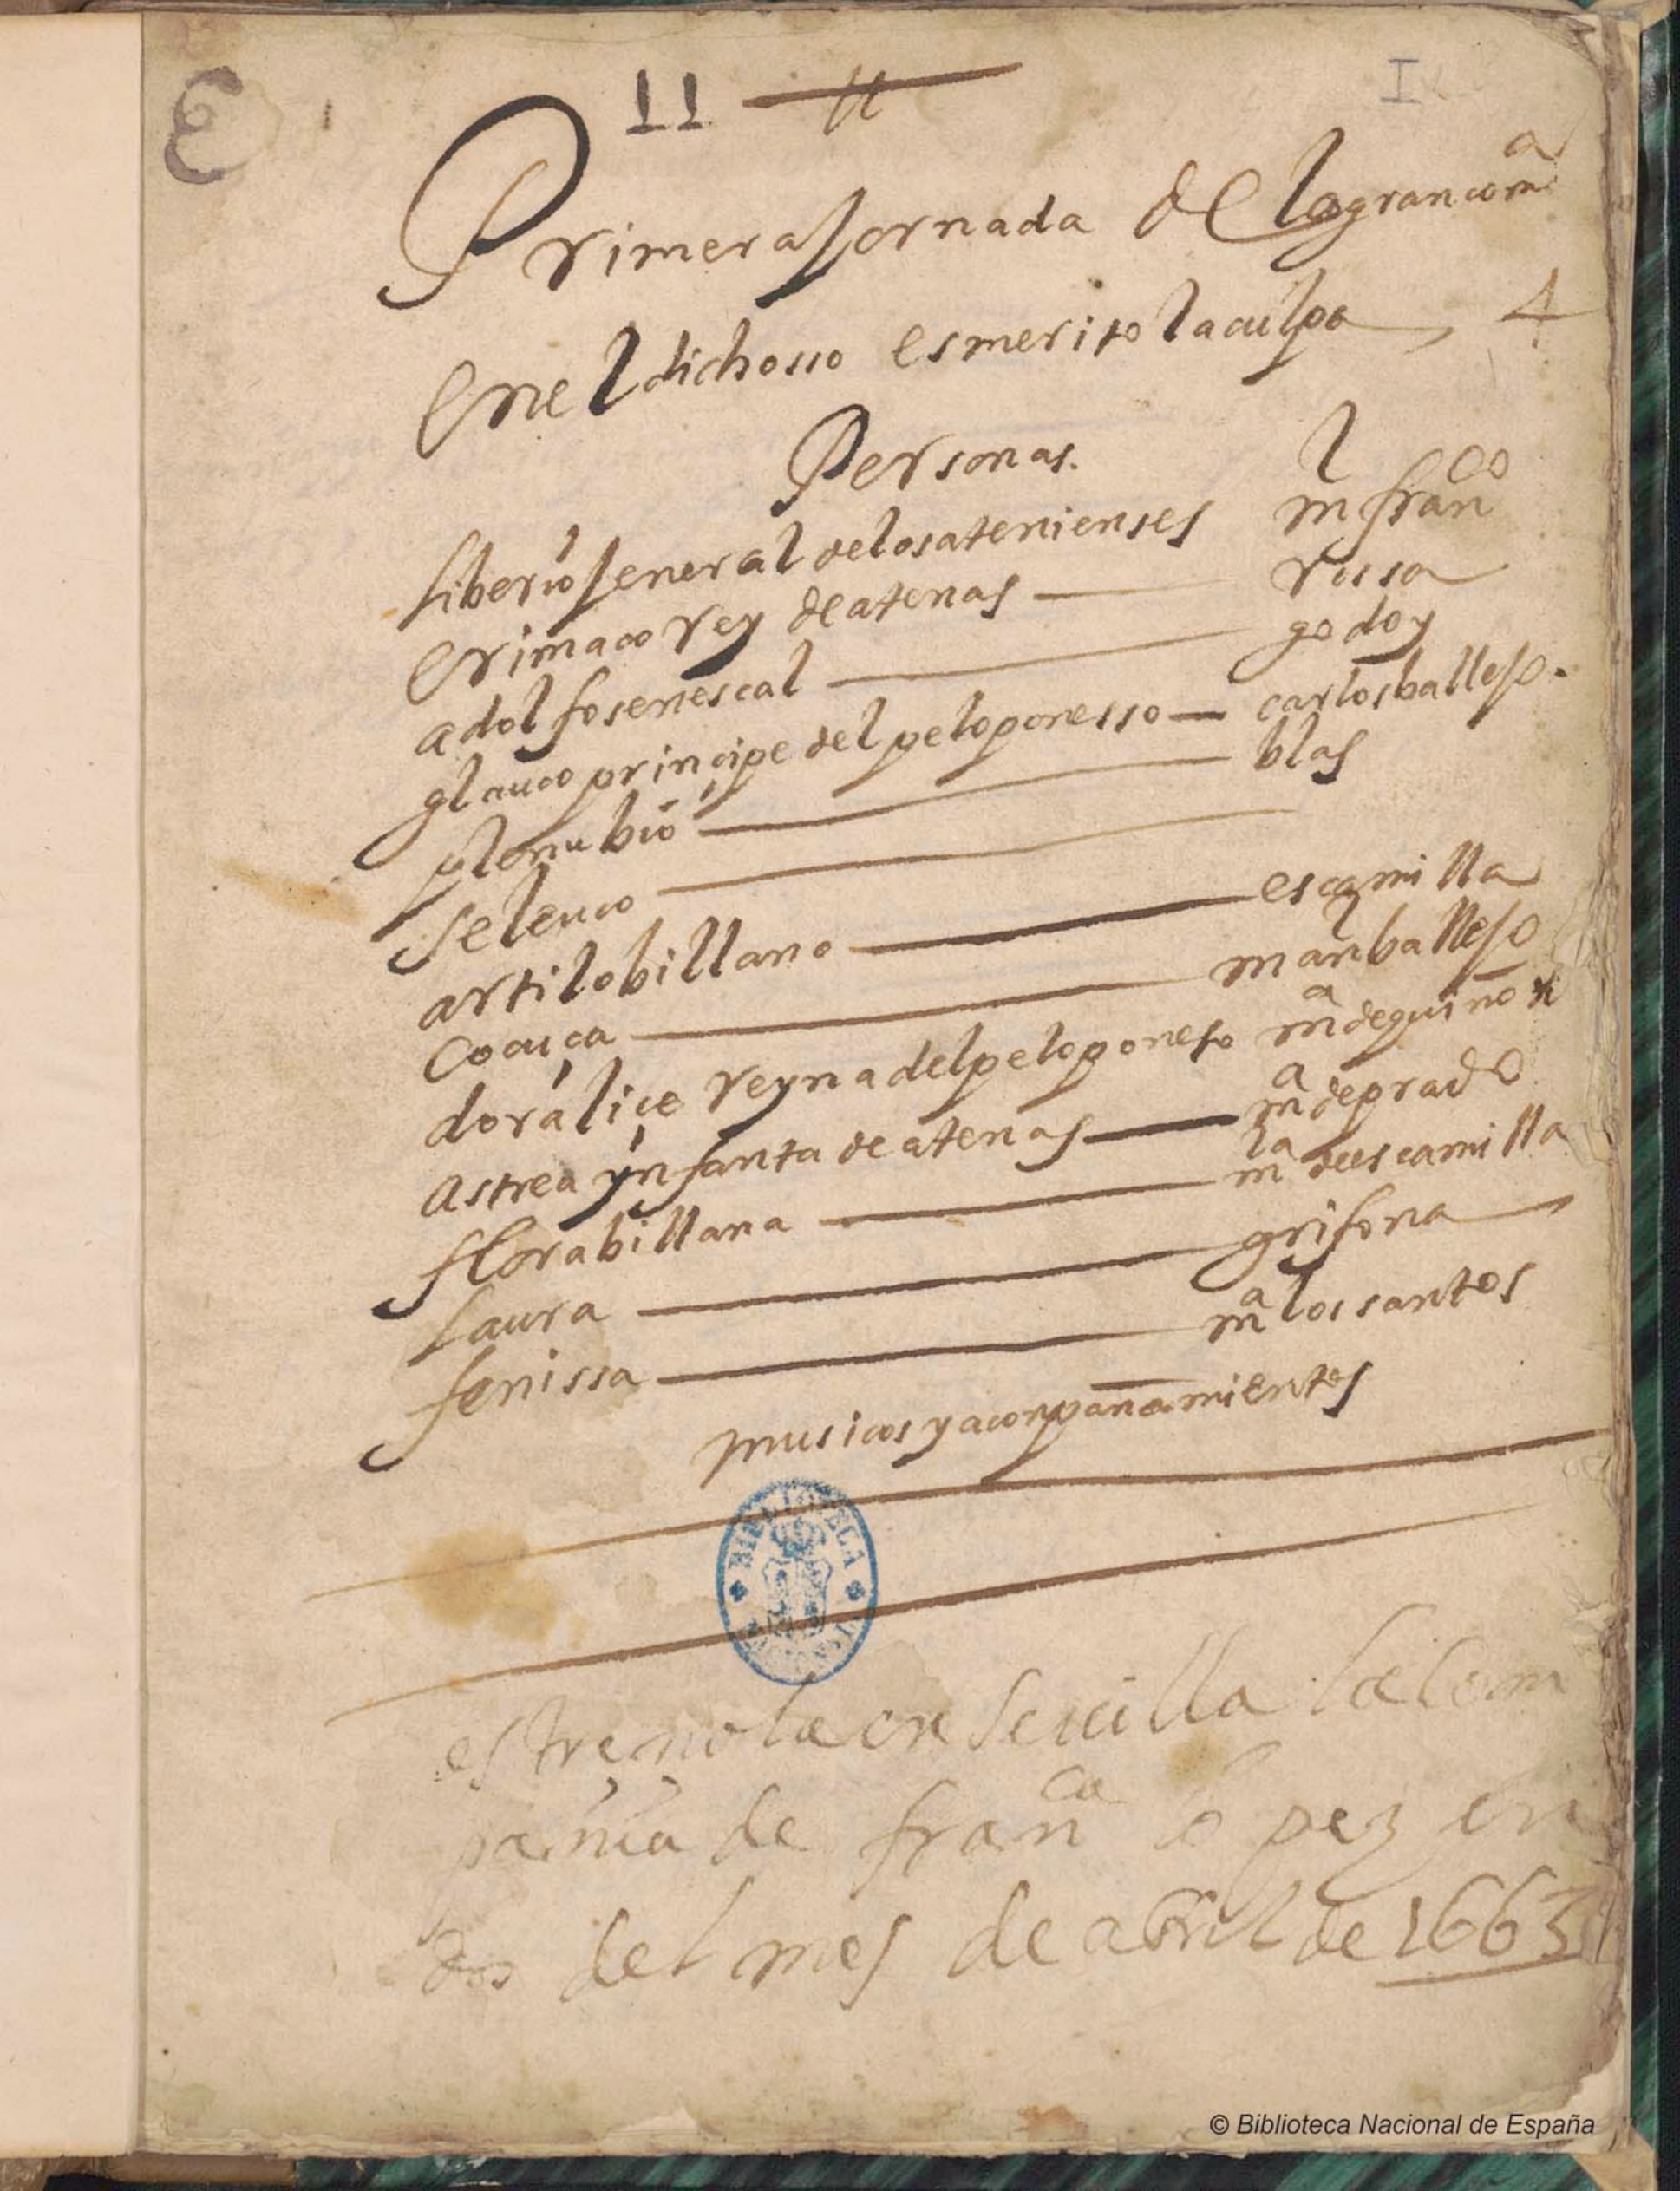 11 11 I
Primera Jornada de la gran comᵃ
en el dichosso es merito la culpa 4
Personas.
liberio Jeneral de los atenienses mˡ franᶜᵒ
erimaco rey de atenas russa
adolfo senescal godoy
glauco principe del peloponesso carlos ballejo.
plonubio blas
seleuco
artilo billano escamilla
cocuça manˡ ballejo
doraliçe reyna del peloponeso mᵃ de quiños
astrea ynfanta de atenas mᵃ de prado
flora billana mˡᵃ de escamilla
laura grifona
fenissa mᵃ los santos
musicos y aconpañamientos
BIBLIOTECA
estrenola en Seuilla la com
pañia de franᶜᵃ lopez en
dos del mes de abril de 1663
© Biblioteca Nacional de España